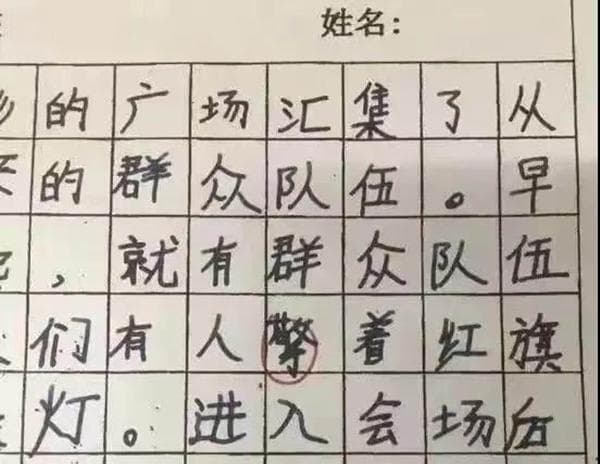 姓名:
的广场汇集了从
的群众队伍。早
，就有群众队伍
们有人擎着红旗
灯。进入会场后